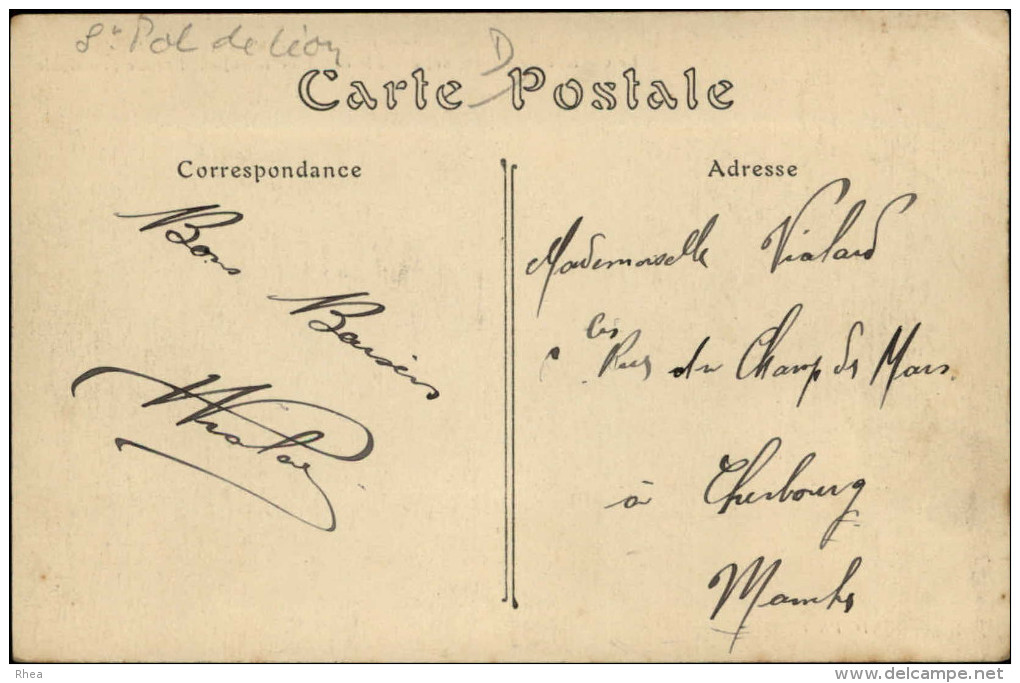 St Pol de Léon
D
Carte Postale
Correspondance
Adresse
Bons
Baisers
Mademoiselle Vialard
Rue du Champ de Mars
à Cherbourg
Manche
Rhea
www.delcampe.net